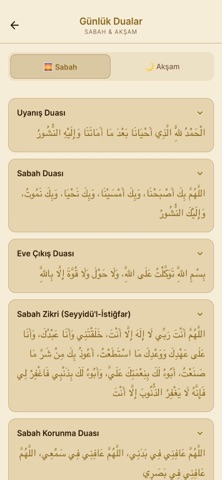 Günlük Dualar
SABAH & AKŞAM
🌅 Sabah
🌙 Akşam
Uyanış Duası
الْحَمْدُ لِلَّهِ الَّذِي أَحْيَانَا بَعْدَ مَا أَمَاتَنَا وَإِلَيْهِ النُّشُورُ
Sabah Duası
اللَّهُمَّ بِكَ أَصْبَحْنَا، وَبِكَ أَمْسَيْنَا، وَبِكَ نَحْيَا، وَبِكَ نَمُوتُ،
وَإِلَيْكَ النُّشُورُ
Eve Çıkış Duası
بِسْمِ اللَّهِ تَوَكَّلْتُ عَلَى اللَّهِ، وَلَا حَوْلَ وَلَا قُوَّةَ إِلَّا بِاللَّهِ
Sabah Zikri (Seyyidü'l-İstiğfar)
اللَّهُمَّ أَنْتَ رَبِّي لَا إِلَهَ إِلَّا أَنْتَ، خَلَقْتَنِي وَأَنَا عَبْدُكَ، وَأَنَا
عَلَى عَهْدِكَ وَوَعْدِكَ مَا اسْتَطَعْتُ، أَعُوذُ بِكَ مِنْ شَرِّ مَا
صَنَعْتُ، أَبُوءُ لَكَ بِنِعْمَتِكَ عَلَيَّ، وَأَبُوءُ لَكَ بِذَنْبِي فَاغْفِرْ لِي
فَإِنَّهُ لَا يَغْفِرُ الذُّنُوبَ إِلَّا أَنْتَ
Sabah Korunma Duası
اللَّهُمَّ عَافِنِي فِي بَدَنِي، اللَّهُمَّ عَافِنِي فِي سَمْعِي، اللَّهُمَّ
عَافِنِي فِي بَصَرِي